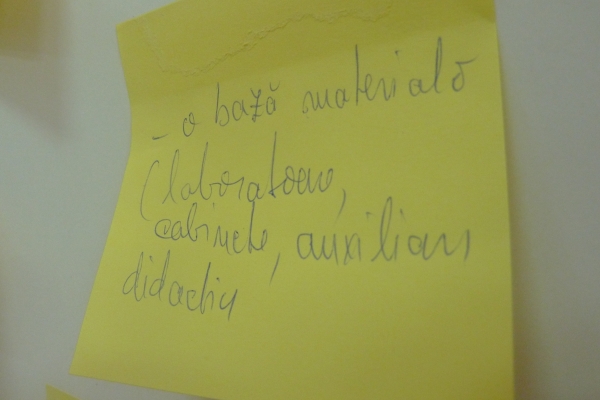 - o bază materială
(laboratoare,
cabinete, auxiliari
didactici